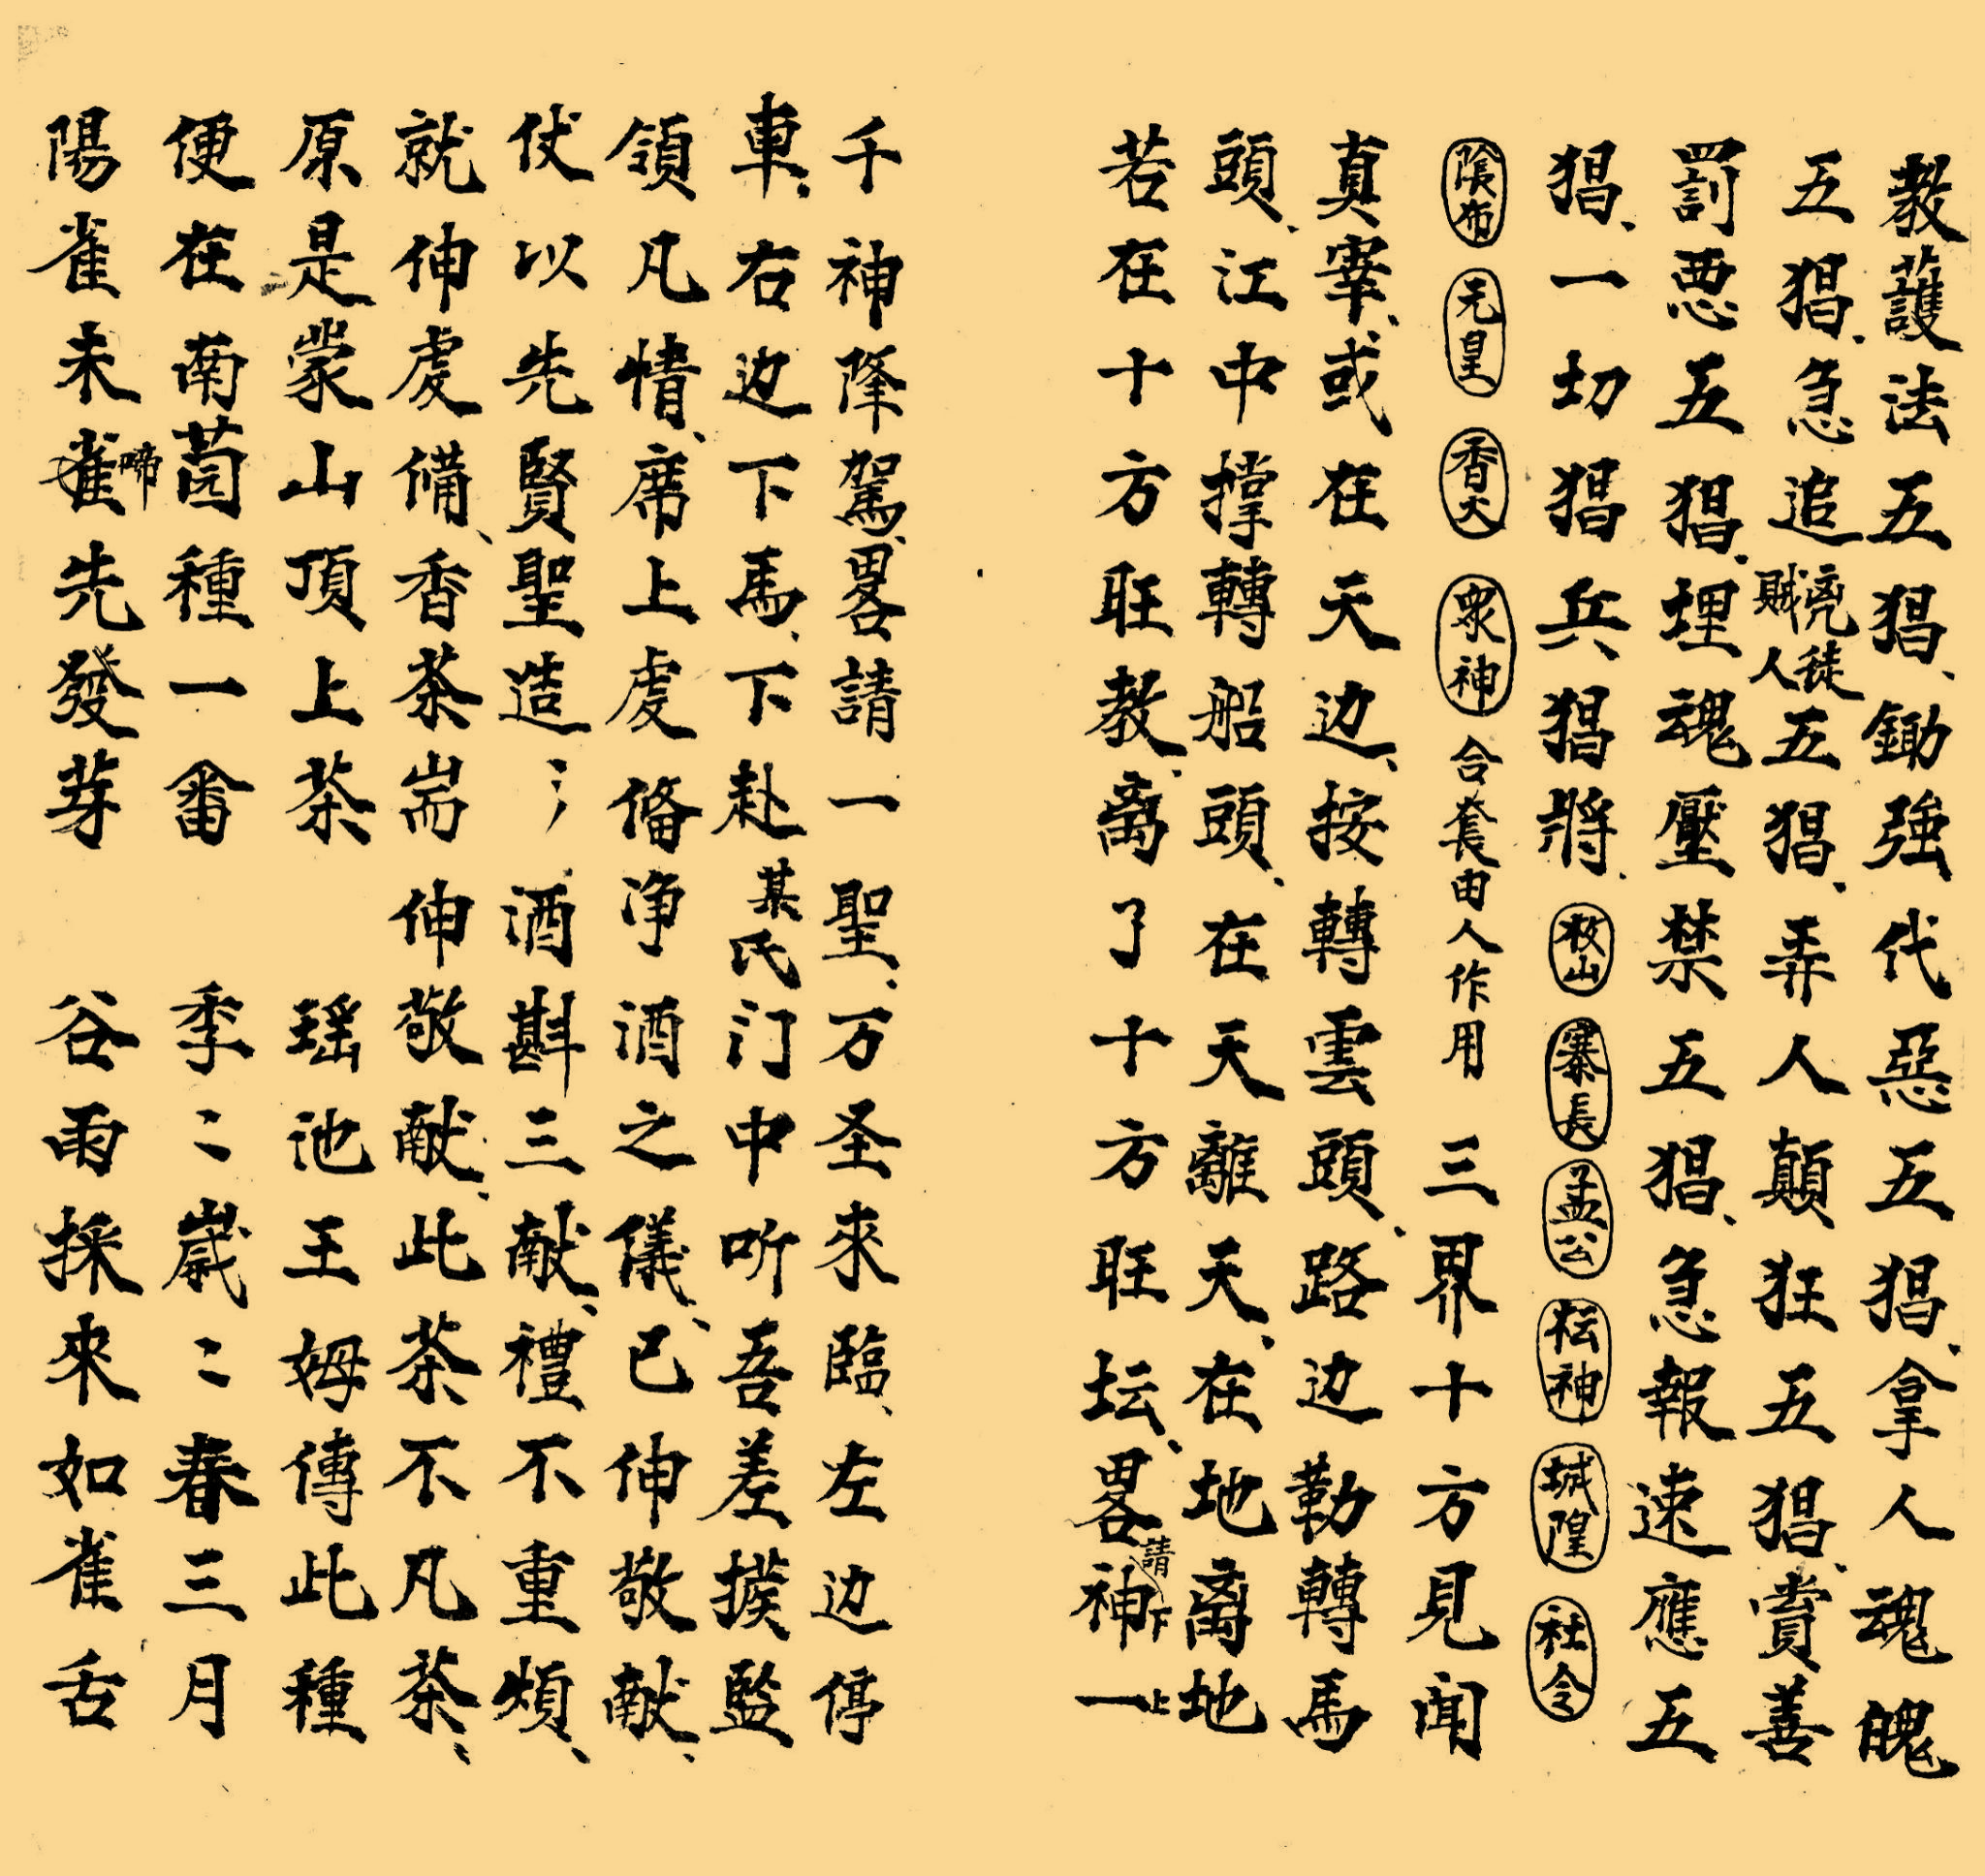 教護法五猖、鋤強代惡五猖、拿人魂魄
五猖、急追兇徒賊人五猖、弄人顛狂五猖、賞善
罰恶五猖、埋魂壓禁五猖、急報速應五
猖、一切猖兵猖將、敉山 寨長 孟公 枟神 城隍 社令
陰佈 元皇 香火 眾神 合套由人作用 三界十方見闻
真宰、或在天边、按轉雲頭、路边勒轉馬
頭、江中撑轉船頭、在天離天、在地离地
若在十方旺教、离了十方旺坛、畧請下神一上
千神降駕、畧請一聖、万圣來臨、左边停
車、右边下馬、下赴某氏门中听吾差撥監
領凡情、席上虔俻净酒之儀、已伸敬献、
伏以先賢聖造〻酒斟三献、禮不重煩、
就伸虔備、香茶耑伸敬献、此茶不凡茶、
原是蒙山頂上茶 瑶池王姆傳此種
便在南园種一畬 季〻歲〻春三月
陽雀未雀啼先發芽 谷雨採來如雀舌